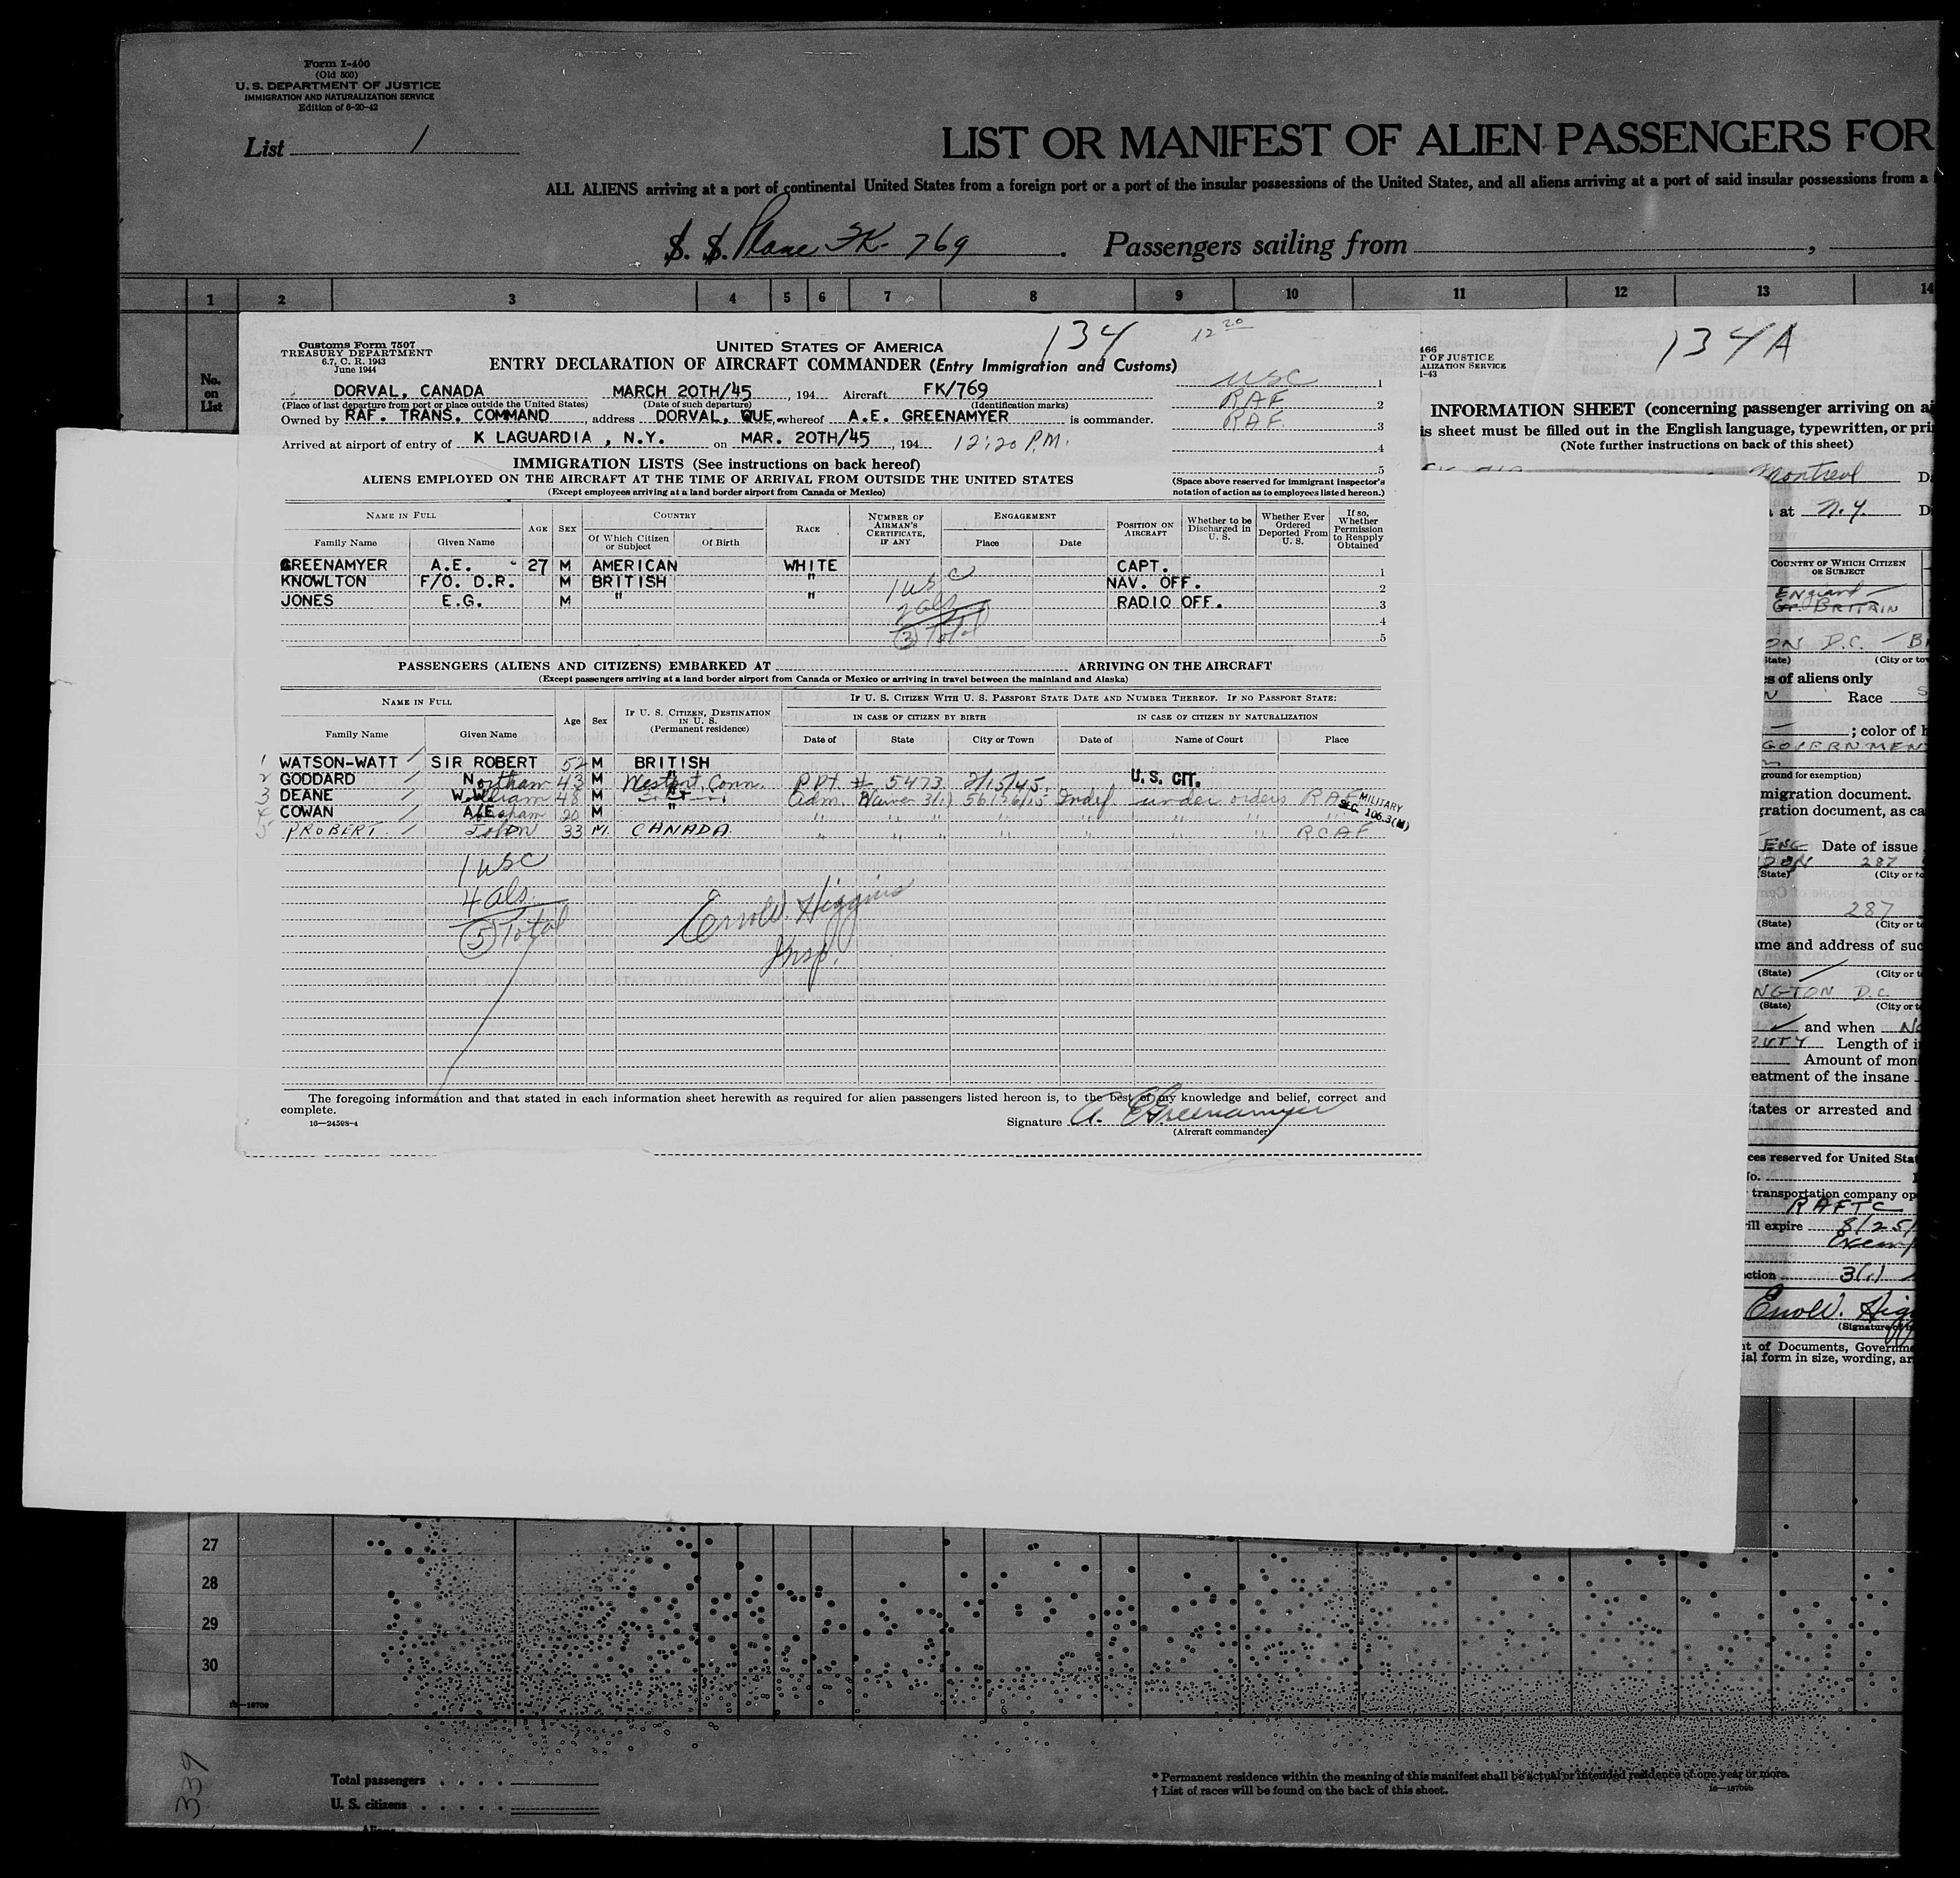 Form I-400
(Old 500)
U. S. DEPARTMENT OF JUSTICE
IMMIGRATION AND NATURALIZATION SERVICE
Edition of 6-20-42
List 1
LIST OR MANIFEST OF ALIEN PASSENGERS FOR
ALL ALIENS arriving at a port of continental United States from a foreign port or a port of the insular possessions of the United States, and all aliens arriving at a port of said insular possessions from a
S. S. Plane FK-769. Passengers sailing from ,
1 2 3 4 5 6 7 8 9 10 11 12 13 14
No. on List
Customs Form 7507
TREASURY DEPARTMENT
6.7, C. R. 1943
June 1944
134
12 20
UNITED STATES OF AMERICA
ENTRY DECLARATION OF AIRCRAFT COMMANDER (Entry Immigration and Customs)
DORVAL, CANADA MARCH 20TH/45, 194 Aircraft FK/769
(Place of last departure from port or place outside the United States) (Date of such departure) (Identification marks)
Owned by RAF. TRANS. COMMAND, address DORVAL, QUE, whereof A.E. GREENAMYER is commander.
Arrived at airport of entry of K LAGUARDIA , N.Y. on MAR. 20TH/45, 194 12:20 P.M.
USC 1
RAF 2
RAF 3
4
5
(Space above reserved for immigrant inspector's notation of action as to employees listed hereon.)
IMMIGRATION LISTS (See instructions on back hereof)
ALIENS EMPLOYED ON THE AIRCRAFT AT THE TIME OF ARRIVAL FROM OUTSIDE THE UNITED STATES
(Except employees arriving at a land border airport from Canada or Mexico)
NAME IN FULL AGE SEX COUNTRY RACE NUMBER OF AIRMAN'S CERTIFICATE, IF ANY ENGAGEMENT POSITION ON AIRCRAFT Whether to be Discharged in U. S. Whether Ever Ordered Deported From U. S. If so, Whether Permission to Reapply Obtained
Family Name Given Name Of Which Citizen or Subject Of Birth Place Date
GREENAMYER A.E. 27 M AMERICAN WHITE CAPT. 1
KNOWLTON F/O. D.R. M BRITISH " NAV. OFF. 2
JONES E.G. M " " RADIO OFF. 3
4
5
1 USC
2 als
(3) Total
PASSENGERS (ALIENS AND CITIZENS) EMBARKED AT ARRIVING ON THE AIRCRAFT
(Except passengers arriving at a land border airport from Canada or Mexico or arriving in travel between the mainland and Alaska)
NAME IN FULL Age Sex IF U. S. CITIZEN, DESTINATION IN U. S. (Permanent residence) IF U. S. CITIZEN WITH U. S. PASSPORT STATE DATE AND NUMBER THEREOF. IF NO PASSPORT STATE:
IN CASE OF CITIZEN BY BIRTH IN CASE OF CITIZEN BY NATURALIZATION
Family Name Given Name Date of State City or Town Date of Name of Court Place
1 WATSON-WATT SIR ROBERT 52 M BRITISH
2 GODDARD Northam 43 M Westport, Conn. PPt # 5473 2/15/45 U.S. CIT.
3 DEANE W.William 48 M Adm. Waiver 3(1) Indef. under orders RAF
MILITARY SEC. 106.3(M)
4 COWAN A/E 20 M " " " " " " " " "
5 PROBERT John 33 M. CANADA " " " " " " " " RCAF
1 USC
4 als.
(5) Total
Errol W. Higgins
Insp.
The foregoing information and that stated in each information sheet herewith as required for alien passengers listed hereon is, to the best of my knowledge and belief, correct and complete.
16—24598-4
Signature A. E. Greenamyer
(Aircraft commander)
134A
466
T OF JUSTICE
ALIZATION SERVICE
1-43
INFORMATION SHEET (concerning passenger arriving on ai
is sheet must be filled out in the English language, typewritten, or pri
(Note further instructions on back of this sheet)
Montreal D
at N.Y. D
COUNTRY OF WHICH CITIZEN OR SUBJECT
England
Gr. BRITAIN
ON D.C. — B
(State) (City or tow
s of aliens only
N Race S
; color of h
GOVERNMEN
ground for exemption)
migration document.
gration document, as ca
ENG Date of issue
DON 287
(State) (City or to
287
(State) (City or to
ame and address of suc
(State) (City or t
NGTON D.C.
(State) (City or t
and when No
DUTY Length of i
Amount of mon
eatment of the insane
tates or arrested and
ces reserved for United Sta
No.
transportation company op
RAFTC
ill expire 8/25/
Exemp
ction 3(1)
Errol W. Hig
(Signature of i
nt of Documents, Governme
ial form in size, wording, ar
27
28
29
30
16—18709
339
Total passengers . . . . .
U. S. citizens . . . . .
Aliens
* Permanent residence within the meaning of this manifest shall be actual or intended residence of one year or more.
† List of races will be found on the back of this sheet.